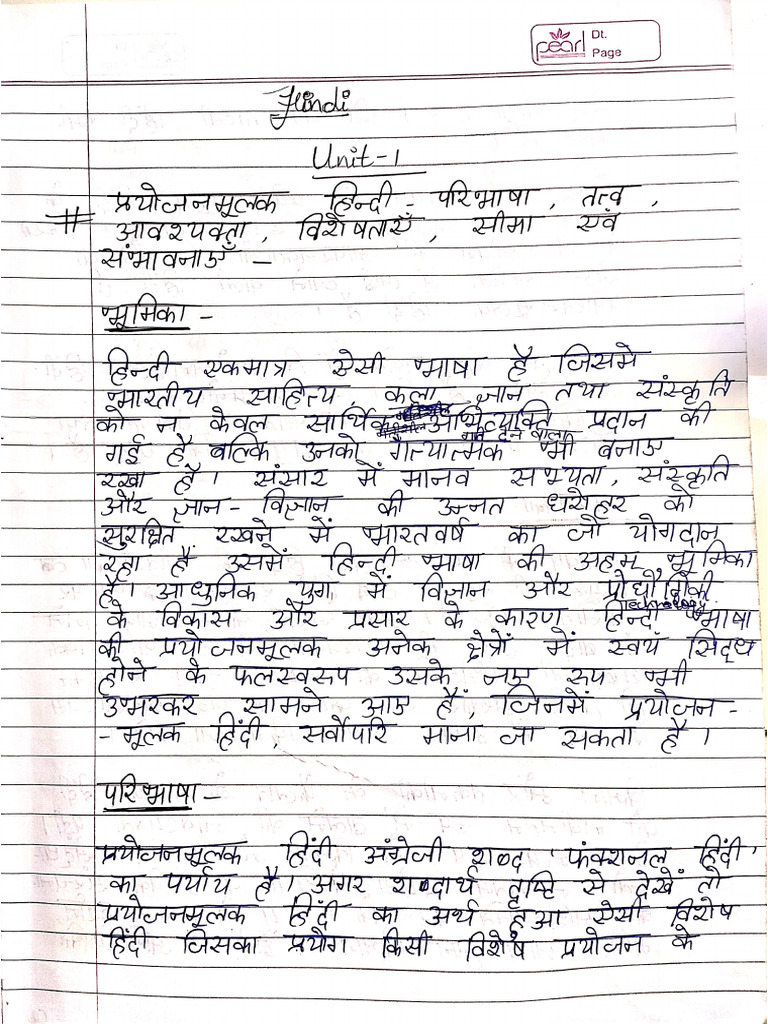 pearl
Dt.
Page
Hindi
Unit-1
# प्रयोजनमूलक हिन्दी - परिभाषा, तत्व,
आवश्यक्ता, विशेषताएँ, सीमा एवं
संभावनाएँ -
भूमिका -
हिन्दी एकमात्र ऐसी भाषा है जिसमे
भारतीय साहित्य, कला, ज्ञान तथा संस्कृति
को न केवल सार्थिक अभिव्यक्ति प्रदान की
गति देने वाला
गई है बल्कि उनको गत्यात्मक भी बनाए
रखा है। संसार में मानव सभ्यता, संस्कृति
और ज्ञान - विज्ञान की उन्नत धरोहर को
सुरक्षित रखने में भारतवर्ष का जो योगदान
रहा है उसमें हिन्दी भाषा की अहम् भूमिका
है। आधुनिक युग में विज्ञान और प्रोद्यौदिकी
technology
के विकास और प्रसार के कारण हिन्दी भाषा
की प्रयोजनमूलक अनेक क्षेत्रों में स्वयं सिद्ध
होने के फलस्वरुप उसके नए रुप भी
उभरकर सामने आए हैं, जिनमें प्रयोजन-
- मूलक हिंदी, सर्वोपरि माना जा सकता है।
परिभाषा -
प्रयोजनमूलक हिंदी अंग्रेजी शब्द 'फंक्शनल हिंदी'
का पर्याय है। अगर शब्दार्थ दृष्टि से देखें तो
प्रयोजनमूलक हिंदी का अर्थ हुआ ऐसी विशेष
हिंदी जिसका प्रयोग किसी विशेष प्रयोजन के